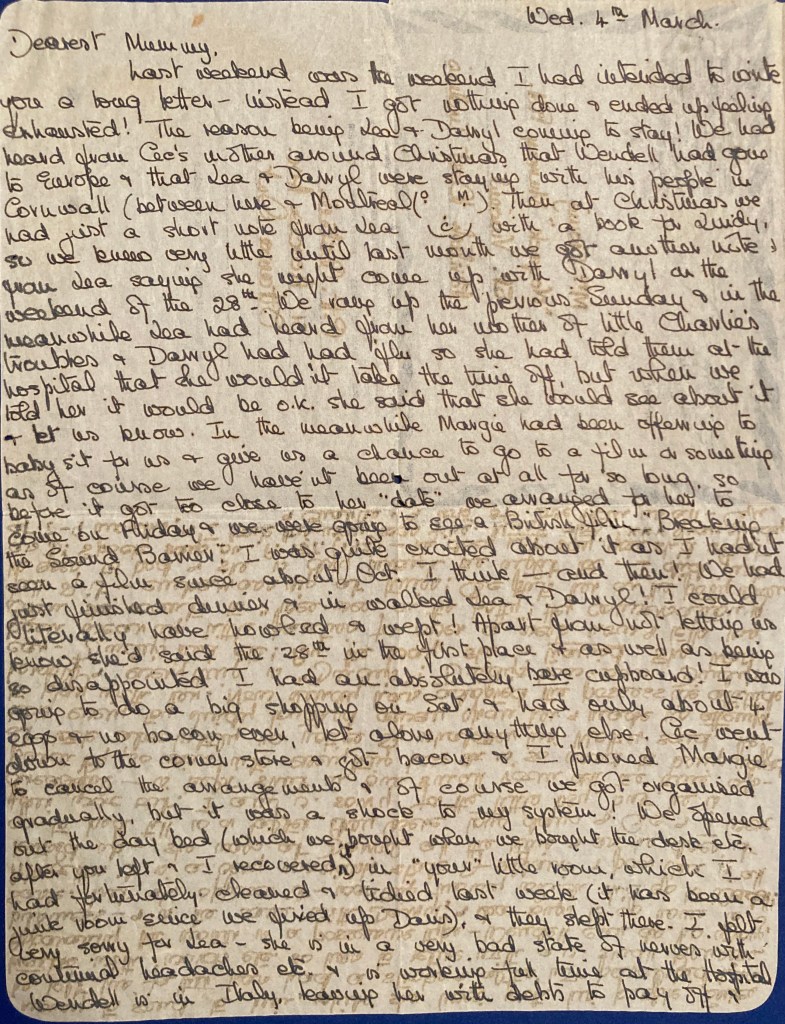 Wed. 4th March.
Dearest Mummy,
Last weekend was the weekend I had intended to write
you a long letter – instead I got nothing done & ended up feeling
exhausted! The reason being Lea & Darryl coming to stay! We had
heard from Cec's mother around Christmas that Wendell had gone
to Europe & that Lea & Darryl were staying with his people in
Cornwall (between here & Montreal). Then at Christmas we
had just a short note from Lea with a book for
so we knew very little until last month we got another note
from Lea saying she might come up with Darryl on the
weekend of the 28th. We rang up the pervious Sunday & in the
meanwhile Lea had heard from her mother of little Charlie's
troubles & Darryl had had flu so she had told them at the
hospital that she wouldn't take the time off, but when we
told her it would be o.k. she said that she would see about it
& let us know. In the meanwhile Margie had been offering to
baby sit for us & give us a chance to go to a film or something
as of course we haven't been out at all for so long, so
before it got too close to her "date" we arranged for her to
come on Friday & we were going to see a British film "Breaking
the Sound Barrier". I was quite excited about it as I hadn't
seen a film since about Oct. I think – and then! We had
just finished dinner & in walked Lea & Darryl! I could
literally have howled & wept! Apart from not letting us
know she'd said the 28th in the first place & as well as being
so disappointed I had an absolutely bare cupboard! I was
going to do a big shopping on Sat. & had only about 4
eggs & no bacon even, let alone anything else. Cec went
down to the corner store & got bacon & I phoned Margie
to cancel the arrangements & of course we got organised
gradually, but it was a shock to my system! We opened
out the day bed (which we bought when we bought the desk etc.
after you left & I recovered it) in "your" little room, which I
had fortunately cleaned & tidied last week (it has been a
junk room since we up ), & they slept there. I felt
very sorry for Lea – she is in a very bad state of nerves with
continual headaches etc. & is working full time at the Hospital
Wendell is in Italy, leaving her with debts to pay off &